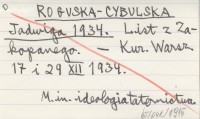 ROGUSKA-CYBULSKA
Jadwiga 1934. List z Za-
kopanego. — Kur. Warsz.
17 i 29 XII 1934.
M.in. ideologia taternictwa